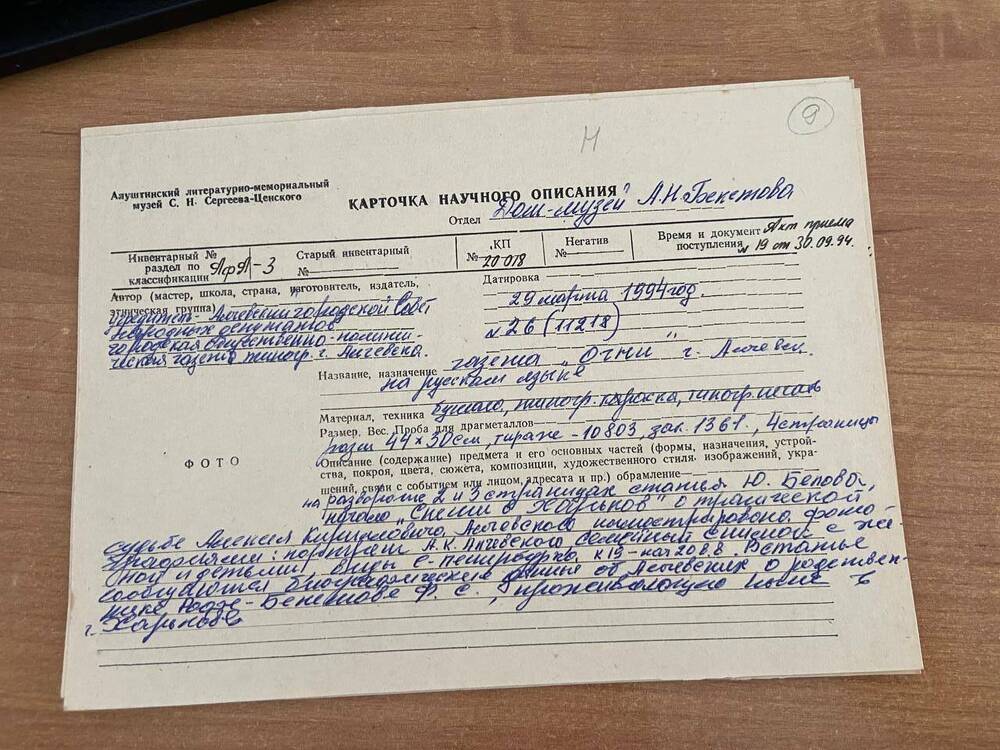 9
Н
Алуштинский литературно-мемориальный
музей С. Н. Сергеева-Ценского
КАРТОЧКА НАУЧНОГО ОПИСАНИЯ
Отдел Дом-музей А.Н. Бекетова
Инвентарный №
раздел по
классификации АфА-3
Старый инвентарный
№
КП
№ 20 078
Негатив
№
Время и документ Акт приема
поступления № 19 от 30.09.94.
Автор (мастер, школа, страна, изготовитель, издатель,
этническая группа)
учредитель- Алчевский городской Совет
народных депутатов
городская общественно-полити-
ческая газета типогр. г. Алчевска.
Датировка
29 марта 1994 год.
№ 26 (11218)
Название, назначение газета „Огни" г. Алчевск.
на русском языке
Материал, техника бумага, типогр. краска, типогр. печать
Размер. Вес. Проба для драгметаллов
разм 44×30см, тираж -10803, зак. 1361., 4 страницы
Описание (содержание) предмета и его основных частей (формы, назначения, устрой-
ства, покроя, цвета, сюжета, композиции, художественного стиля. изображений, укра-
шений, связи с событием или лицом, адресата и пр.) обрамление
ФОТО
на развороте 2 и 3 страницах статья Ю. Белова,
начало о трагической
судьбе Алексея Кирилловича Алчевского иллюстрирована фото-
графиями: портрет А.К. Алчевского семейный снимок с же-
ной и детьми, виды С-Петербурга к 19- нач 20 в.в. В статье
сообщаются биографические данные об Алчевских о родствен-
нике Ф. С., проживающего ныне в
г. Харькове